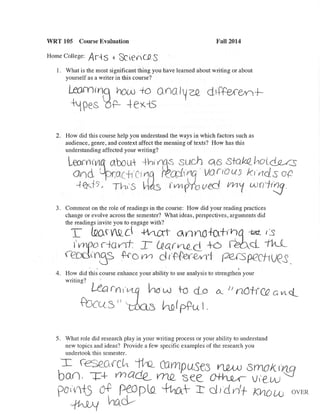 WRT 105 Course Evaluation Fall 2014
Home College: Arts & Sciences
1. What is the most significant thing you have learned about writing or about
yourself as a writer in this course?
Learning how to analyze different
types of texts
2. How did this course help you understand the ways in which factors such as
audience, genre, and context affect the meaning of texts? How has this
understanding affected your writing?
Learning about things such as stakeholders
and practicing reading various kinds of
texts, This has improved my writing.
3. Comment on the role of readings in the course: How did your reading practices
change or evolve across the semester? What ideas, perspectives, arguments did
the readings invite you to engage with?
I learned that annotating is
important. I learned to read the
readings from different perspectives.
4. How did this course enhance your ability to use analysis to strengthen your
writing?
Learning how to do a "notice and
focus" was helpful.
5. What role did research play in your writing process or your ability to understand
new topics and ideas? Provide a few specific examples of the research you
undertook this semester.
I research the campuses new smoking
ban. It made me see other view
points of people that I didn't know
they had
OVER